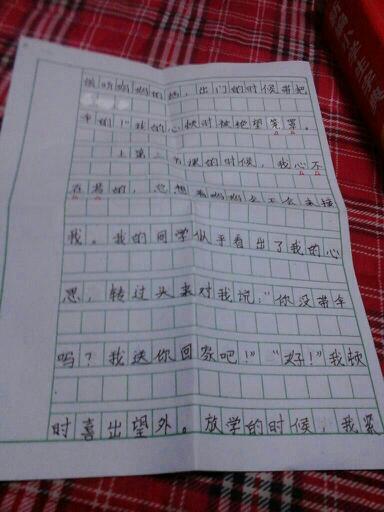 听妈妈的话，出门的时候带把
伞的！”我的心顿时被绝望笼罩。
上第二节课的时候，我心不
在焉的，总想着妈妈会不会来接
我。我的同学似乎看出了我的心
思，转过头来对我说：“你没带伞
吗？我送你回家吧！”“好！”我顿
时喜出望外。放学的时候，我紧